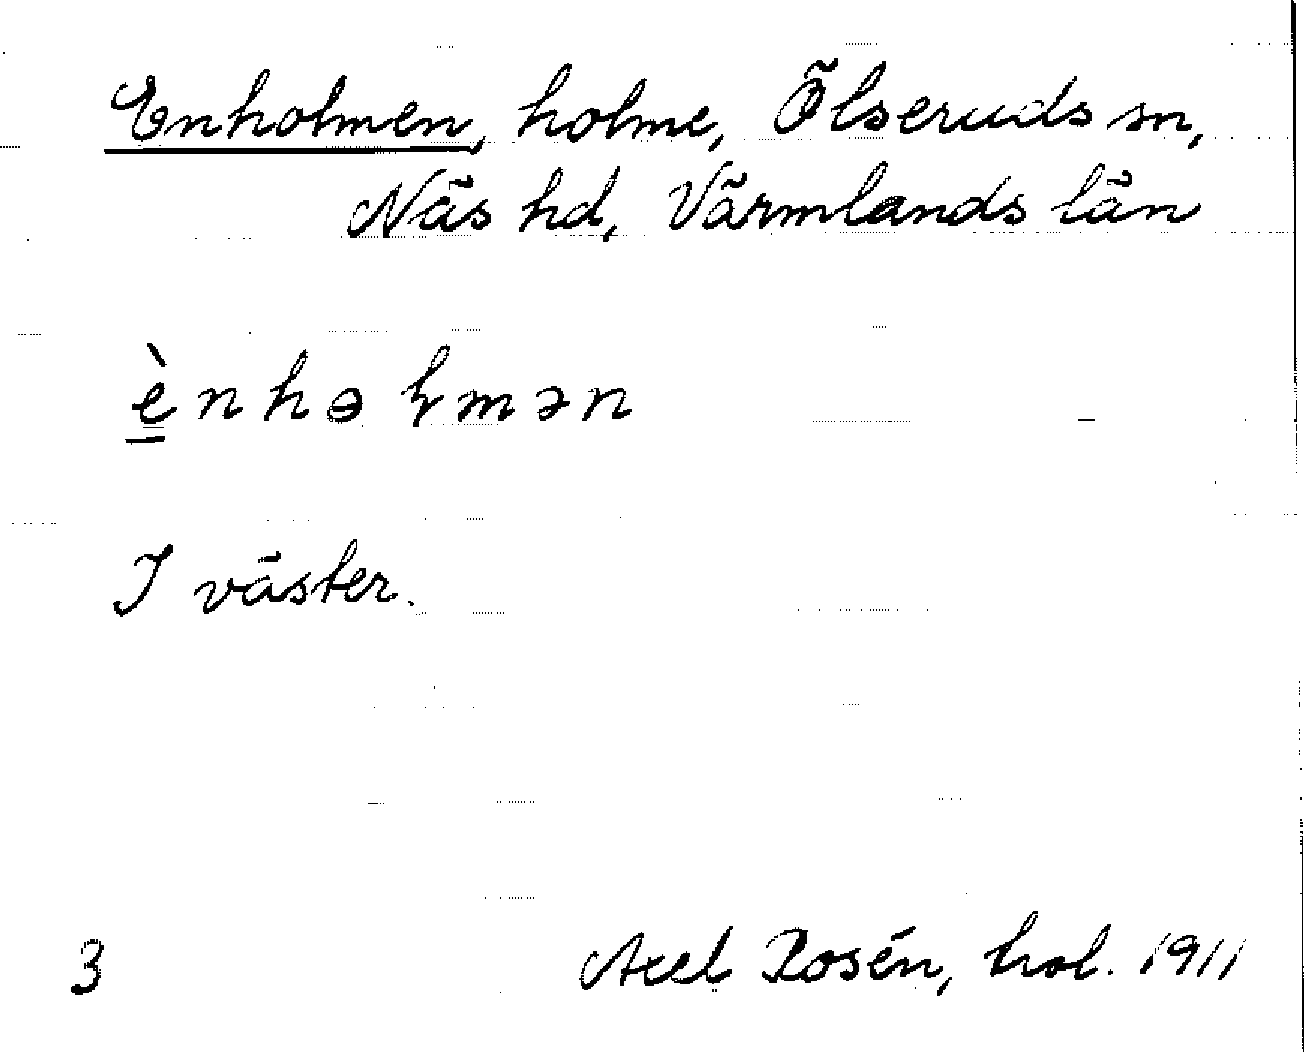 Enholmen, holme, Ölseruds sn,
Näs hd, Värmlands län
ènhəɫmən
I väster.
3 Axel Rosén, hol. 1911